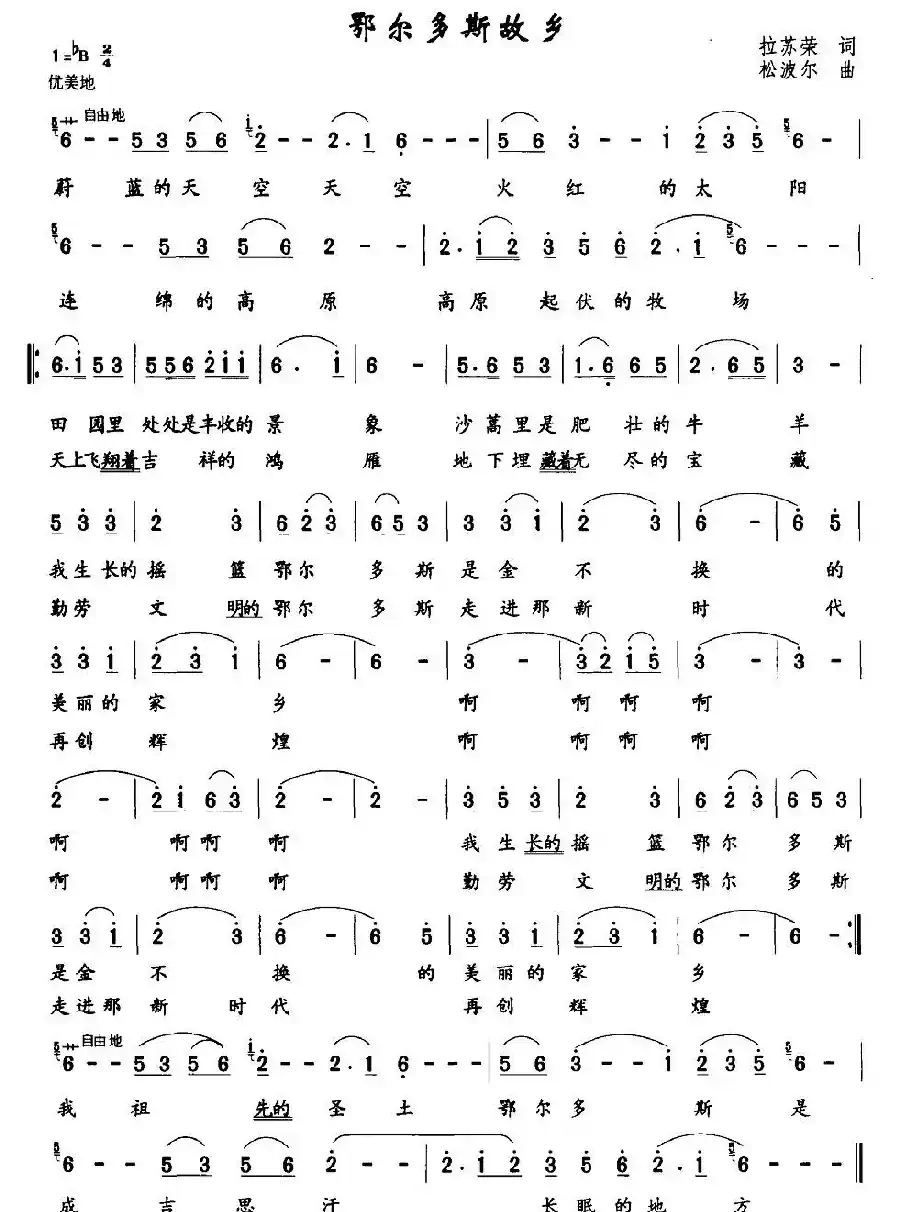 鄂尔多斯故乡
1=♭B 2/4
拉苏荣 词
优美地
松波尔 曲
自由地
6 - - 5 3 5 6 2 - - 2 . 1 6 - - - | 5 6 3 - - 1 2 3 5 6 - |
蔚 蓝的天 空 天 空 火 红 的 太 阳
6 - - 5 3 5 6 2 - - | 2 . 1 2 3 5 6 2 . 1 6 - - - |
连 绵的高 原 高原 起伏的牧 场
6 . 1 5 3 | 5 5 6 2 1 1 | 6 . 1 | 6 - | 5 . 6 5 3 | 1 . 6 6 5 | 2 . 6 5 | 3 - |
田 园里 处处是丰收的 景 象 沙蒿里是肥 壮的牛 羊
天上飞翔着吉 祥的 鸿 雁 地下埋藏着无 尽的宝 藏
5 3 3 | 2 3 | 6 2 3 | 6 5 3 | 3 3 1 | 2 3 | 6 - | 6 5 |
我生长的摇 篮 鄂尔 多斯 是金 不 换 的
勤劳 文 明的 鄂尔 多斯 走进那 新 时 代
3 3 1 | 2 3 1 | 6 - | 6 - | 3 - | 3 2 1 5 | 3 - | 3 - |
美丽的 家 乡 啊 啊 啊 啊
再创 辉 煌 啊 啊 啊 啊
2 - | 2 1 6 3 | 2 - | 2 - | 3 5 3 | 2 3 | 6 2 3 | 6 5 3 |
啊 啊啊 啊 我生长的摇 篮 鄂尔 多斯
啊 啊啊 啊 勤劳 文 明的鄂尔 多斯
3 3 1 | 2 3 | 6 - | 6 5 | 3 3 1 | 2 3 1 | 6 - | 6 - :|
是金 不 换 的 美丽的 家 乡
走进那 新 时代 再创 辉 煌
自由地
6 - - 5 3 5 6 2 - - 2 . 1 6 - - - | 5 6 3 - - 1 2 3 5 6 - |
我 祖 先的 圣 土 鄂尔多 斯 是
6 - - 5 3 5 6 2 - | 2 . 1 2 3 5 6 2 . 1 6 - - - |
成 吉 思 汗 长眠的地 方